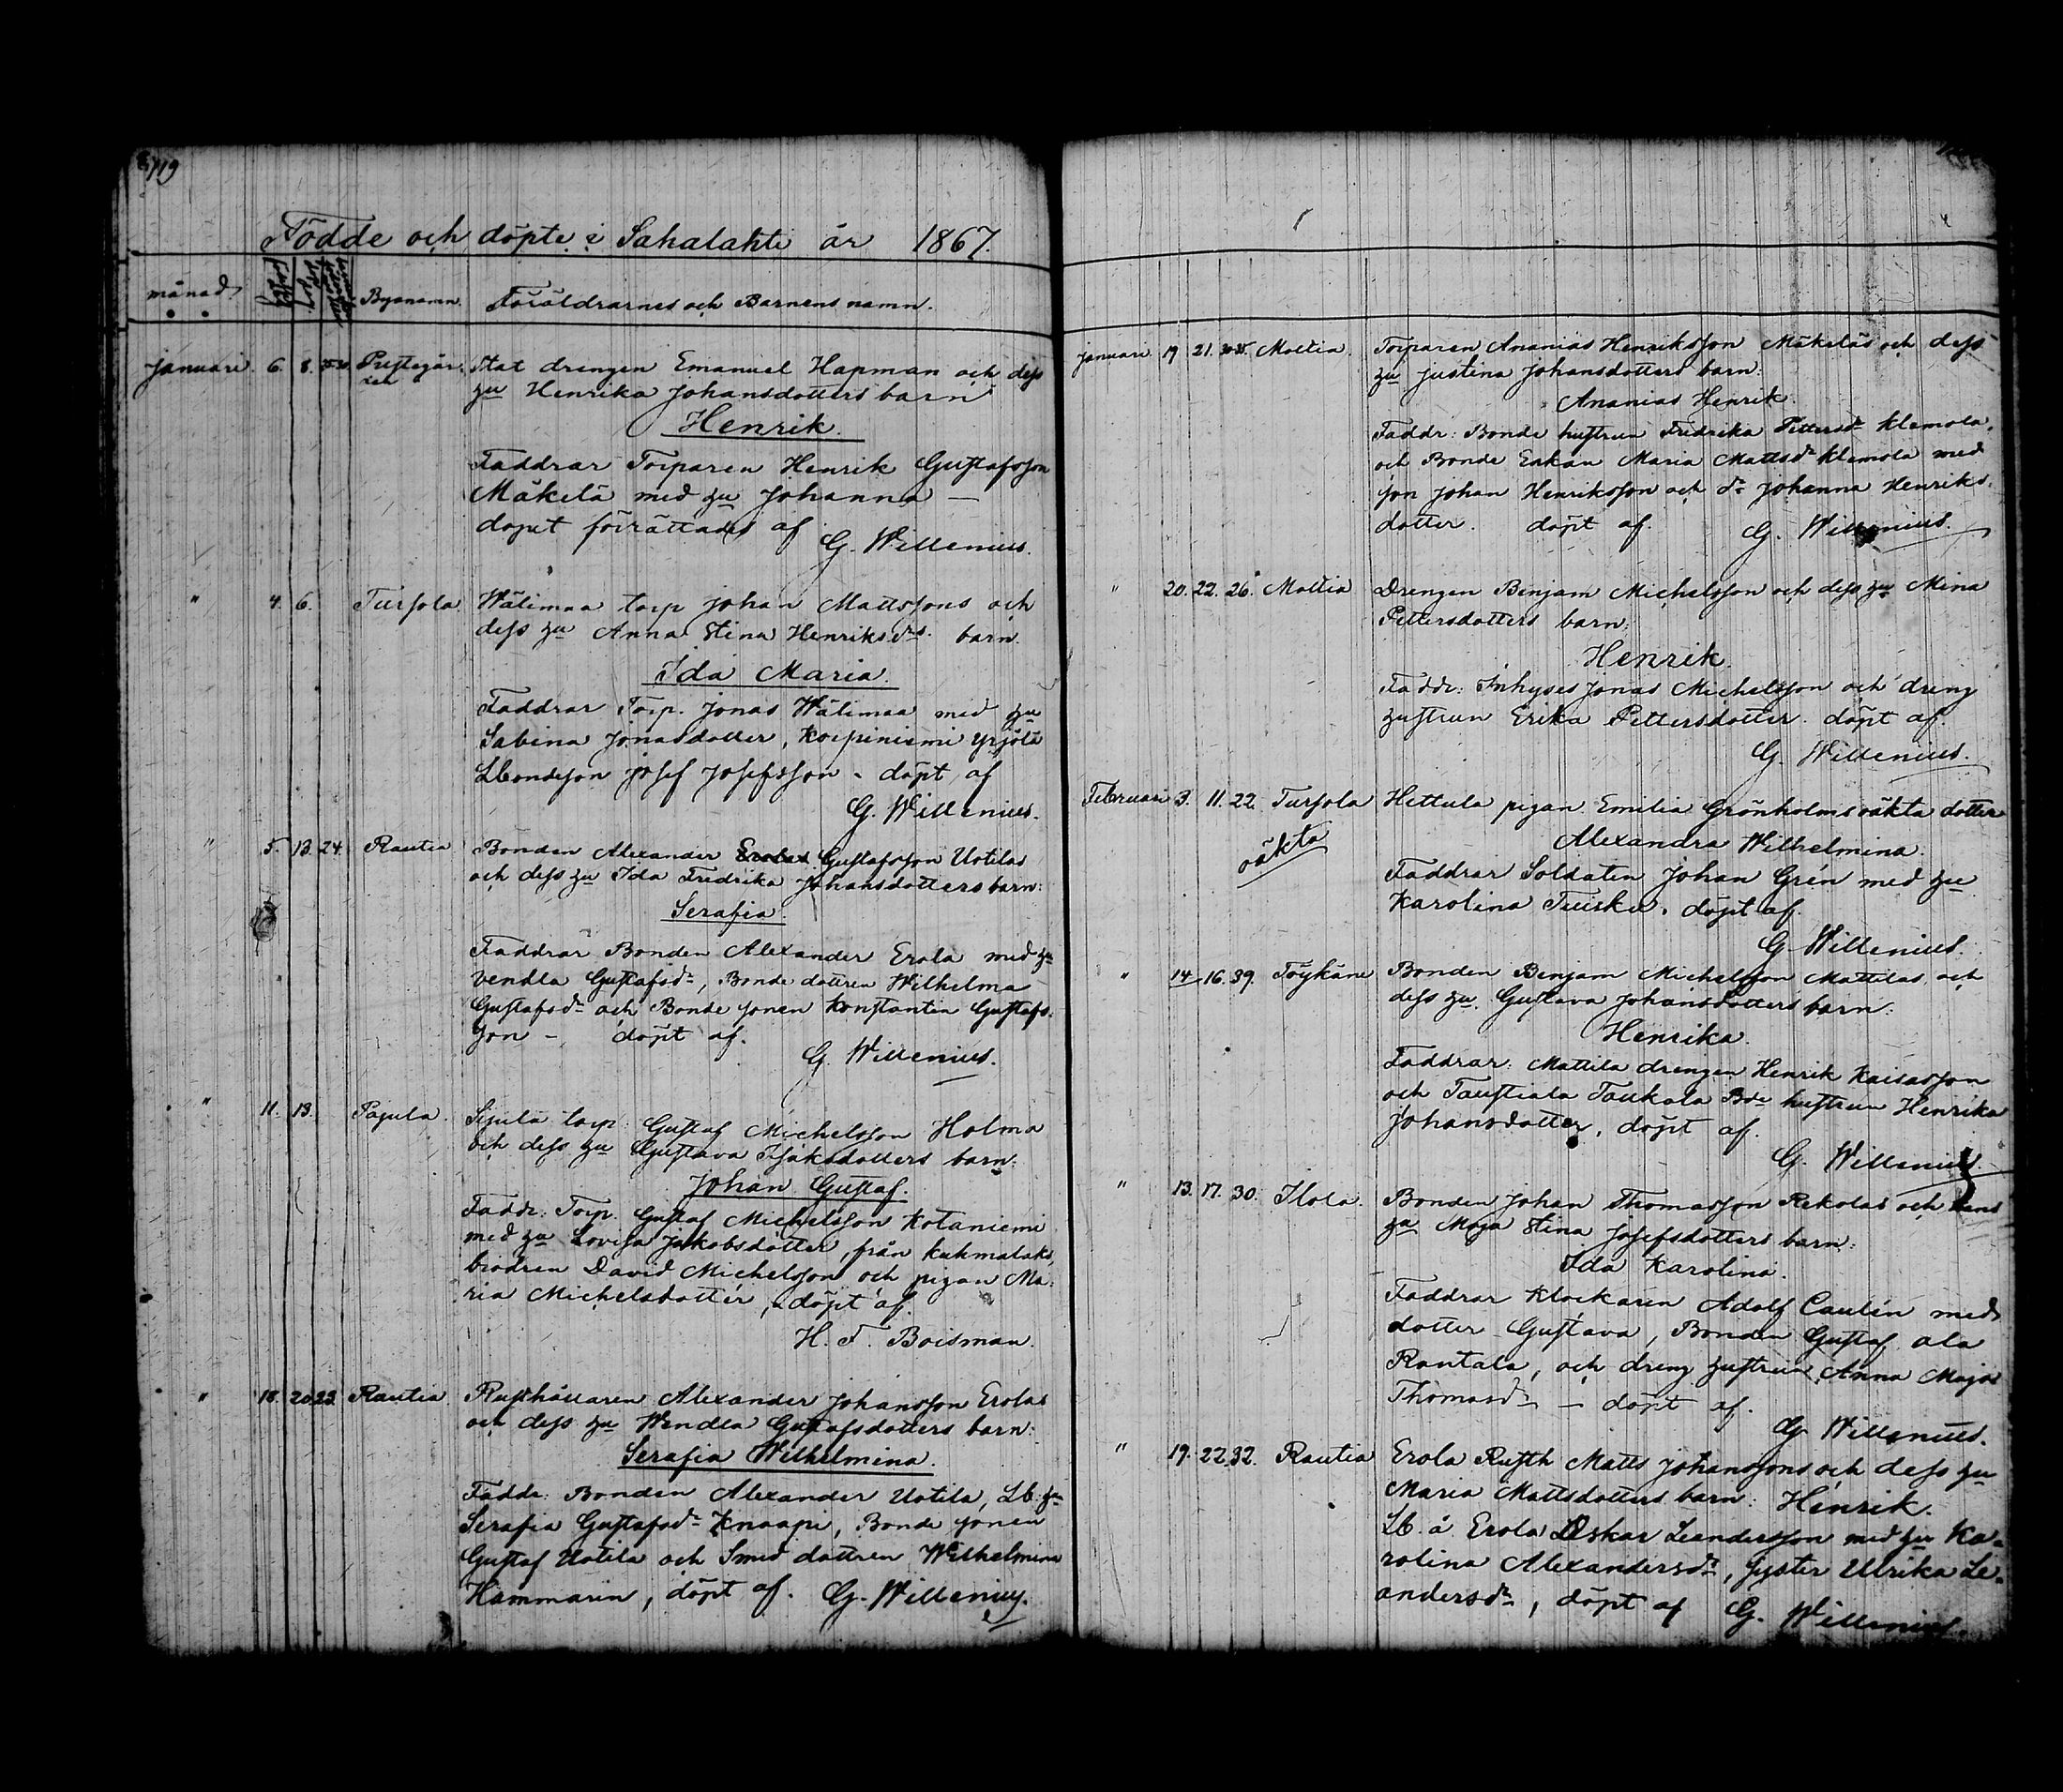 119
Födde och döpte i Sahalahti år 1867.
månad Byanamn. Föräldrarnes och Barnens namn.
januari. 6. 8. Prestegår-
den
Stat drengen Emanuel Hapman och dess
hu Henrika Johansdotters barn
Henrik.
Faddrar Torparen Henrik Gustafsson
Mäkelä med hu Johanna —
dopet förrättades af G. Willenius.
" 4. 6. Tursola Wälimaa torp Johan Mattssons och
dess hu Anna Stina Henriksdrs. barn.
Ida Maria.
Faddrar Torp. Jonas Wälimaa med hu
Sabina Jonasdotter, Korpiniemi Yrjölä
Lbondeson Josef Josefsson - döpt af
G. Willenius.
" 5. 13. 24. Rautia Bonden Alexander Gustafsson Uotilas
och dess hu Ida Fredrika Johansdotters barn:
Serafia.
Faddrar Bonden Alexander Erola med hu
Vendla Gustafsdr, Bonde dottren Wilhelma
Gustafsdr och Bonde sonen Konstantin Gustafs-
son - döpt af.
G. Willenius.
" 11. 13. Pajula. Sipilä torp: Gustaf Michelsson Holma
och dess hu Gustava Isaksdotters barn:
Johan Gustaf.
Faddr: Torp. Gustaf Michelsson Kotaniemi
med hu Lovisa Jakobsdotter, från Kuhmalaks,
brodren David Michelsson och pigan Ma-
ria Michelsdotter, döpt af.
H. F. Boisman.
" 18. 20. 23. Rautia Rusthållaren Alexander Johansson Erolas
och dess hu Wendla Gustafsdotters barn:
Serafia Wilhelmina.
Faddr: Bonden Alexander Uotila, Lb: hu
Serafia Gustafsdr Knaapi, Bonde sonen
Gustaf Uotila och Smed dottren Wilhelmina
Hammarin, döpt af. G. Willenius.
januari. 19 21. Moltia. Torparen Ananias Henriksson Mäkeläs och dess
hu Justina Johansdotters barn:
Ananias Henrik.
Faddr: Bonde hustrun Fredrika Pettersdr Klemola,
och Bonde Enkan Maria Mattsdr Klemola med
son Johan Henriksson och dr Johanna Henriks-
dotter. döpt af. G. Willenius.
" 20. 22. 26. Moltia Drengen Benjam Michelsson och dess hu Mina
Pettersdotters barn:
Henrik.
Faddr: Inhyses Jonas Michelsson och dreng
hustrun Erika Pettersdotter. döpt af.
G. Willenius.
Februari 3. 11. 22. Tursola Hettula pigan Emilia Grönholms oäkta dotter
oäkta
Alexandra Wilhelmina.
Faddrar Soldaten Johan Grén med hu
Karolina Tuisku. döpt af.
G. Willenius.
" 14. 16. 39. Töykänä Bonden Benjam Michelsson Mattilas och
dess hu. Gustava Johansdotters barn:
Henrika.
Faddrar: Mattila drengen Henrik Kaisasson
och Taustiala Toukola Bde hustrun Henrika
Johansdotter, döpt af.
G. Willenius.
" 13. 17. 30. Ilola. Bonden Johan Thomasson Rekolas och hans
hu Maja Stina Josefsdotters barn:
Ida Karolina.
Faddrar Klockaren Adolf Caulén med
dotter Gustava, Bonden Gustaf ala
Rantala, och dreng hustrun Anna Maja
Thomasdr — döpt af.
G. Willenius.
" 19. 22. 32. Rautia Erola Rusth Matts Johanssons och dess hu
Maria Mattsdotters barn: Henrik.
Lb. å Erola Oskar Leandersson med hu Ka-
rolina Alexandersdr, syster Ulrika Le-
andersdr, döpt af G. Willenius.